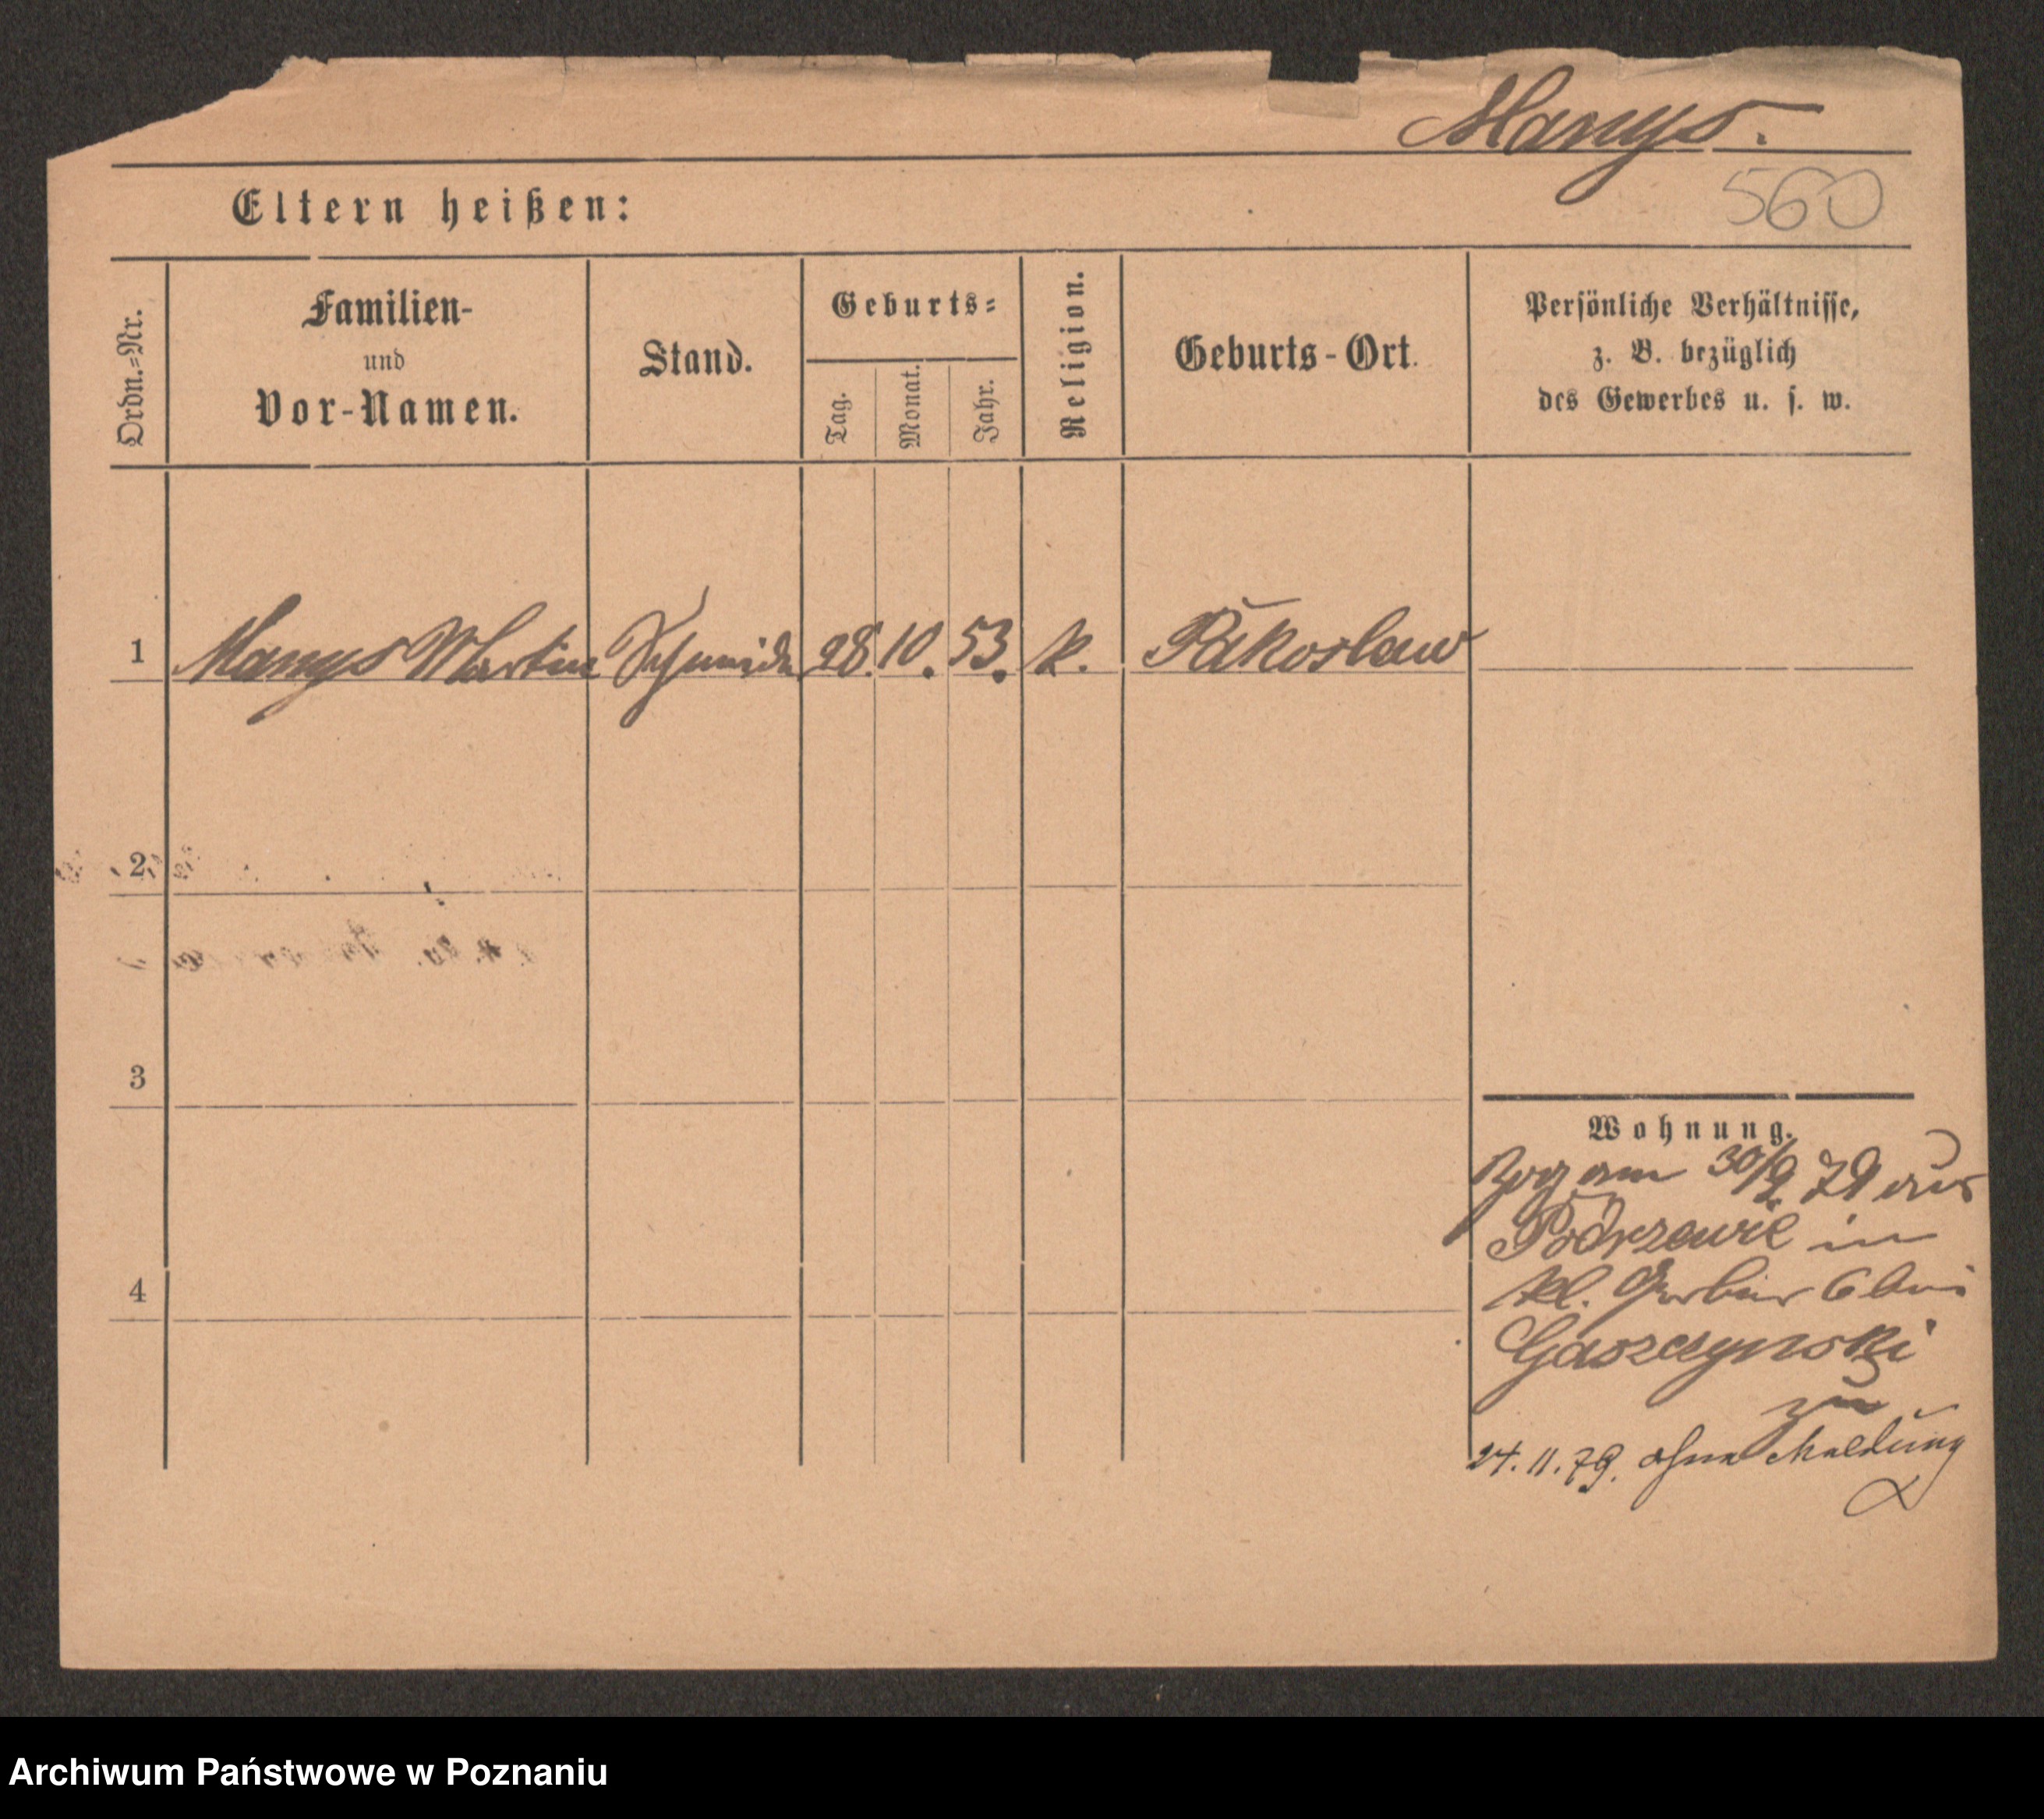 Manys.
560
Eltern heißen:
Ordn.=Nr.
Familien-
und
Vor-Namen.
Stand.
Geburts=
Tag.
Monat.
Jahr.
Religion.
Geburts-Ort.
Persönliche Verhältnisse,
z. B. bezüglich
des Gewerbes u. s. w.
1 Manys Martin Schmied 28. 10. 53. k. Pakoslaw
2
3
4
Wohnung.
Zog am 30/9 79 aus
Podrzewie in
kl. Gerber 6 bei
Gaszczynski
zu
24. 11. 79. ohne Meldung
Archiwum Państwowe w Poznaniu